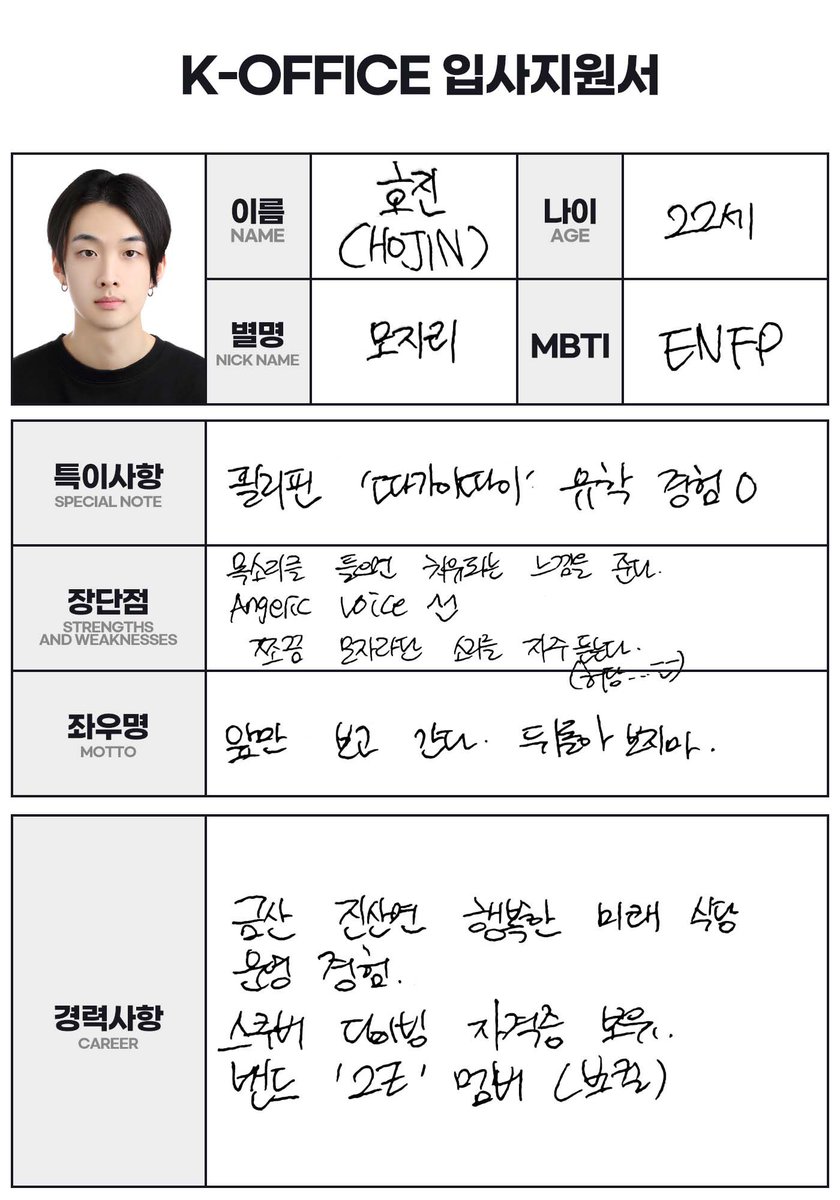 K-OFFICE 입사지원서
이름
NAME
호진
(HOJIN)
나이
AGE
22세
별명
NICK NAME
모지리
MBTI
ENFP
특이사항
SPECIAL NOTE
필리핀 '따가이따이' 유학 경험 O
장단점
STRENGTHS
AND WEAKNESSES
목소리를 들으면 치유되는 느낌을 준다.
Angeric voice 선
쪼끔 모자라단 소리를 자주 듣는다.
(허당...ㅡㅡ)
좌우명
MOTTO
앞만 보고 간다. 뒤돌아 보지마.
경력사항
CAREER
금산 진산면 행복한 미래 식당
운영 경험.
스쿠버 다이빙 자격증 보유.
밴드 '2Z' 멤버 (보컬)